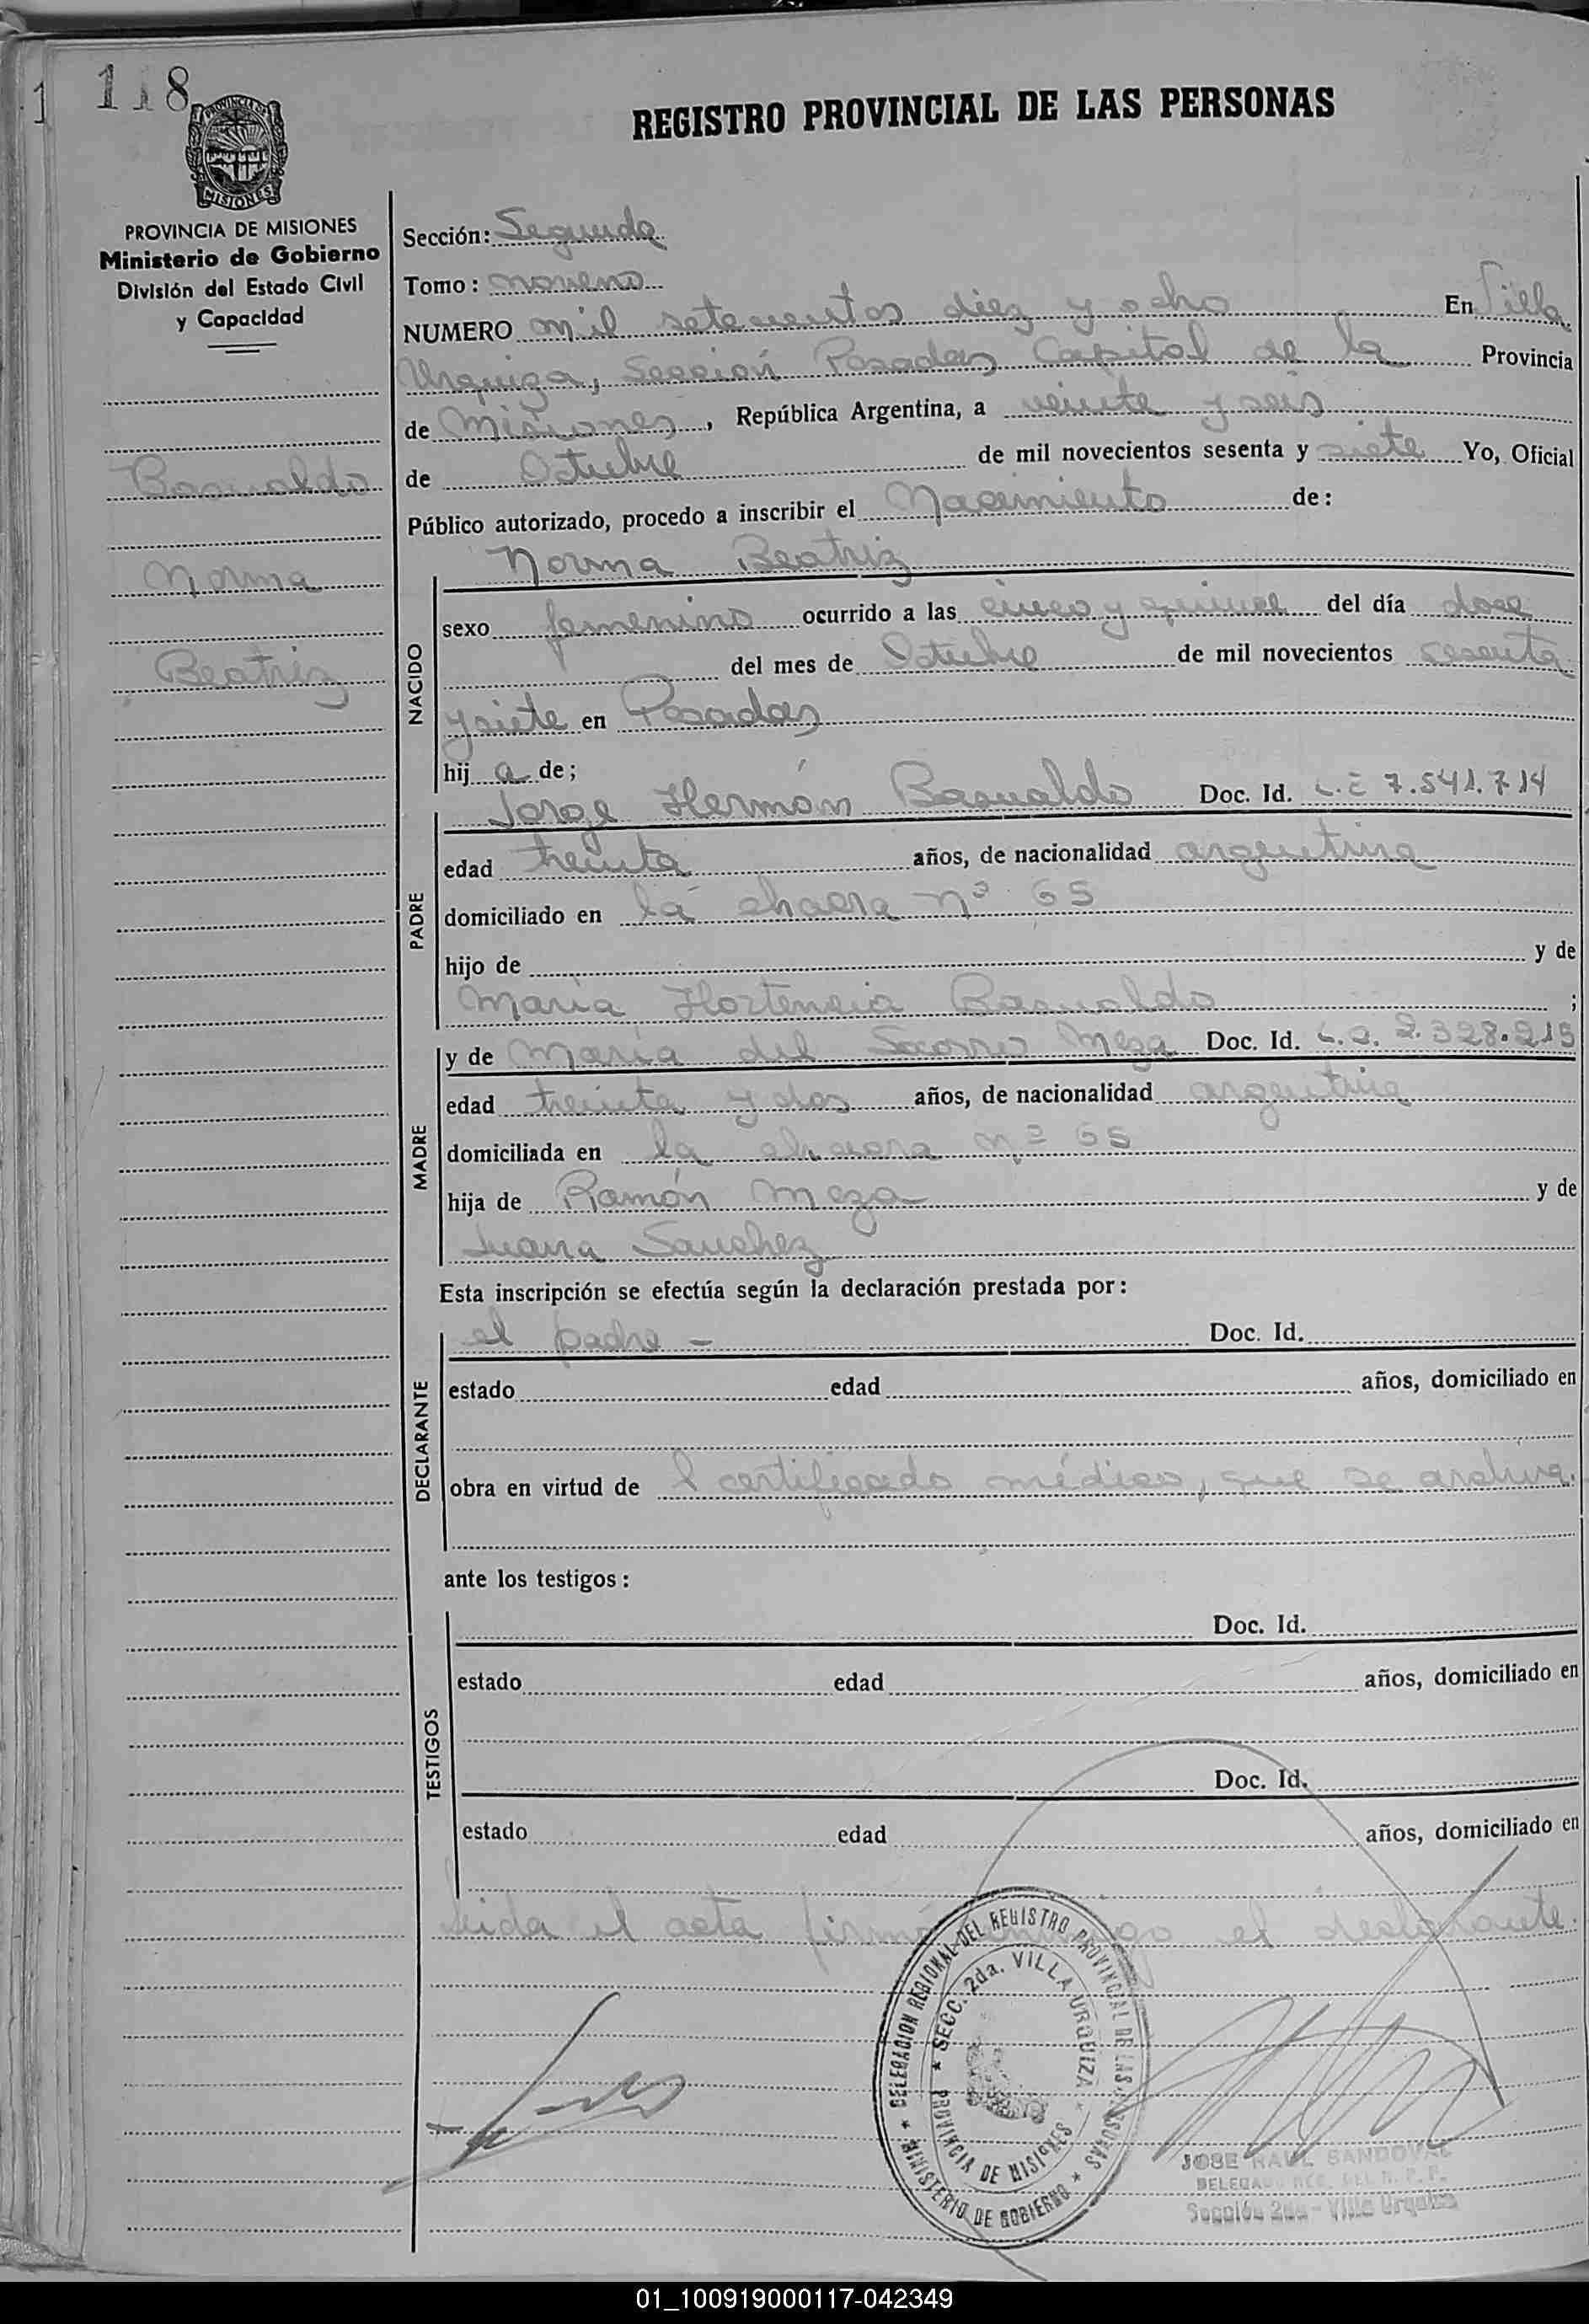 118
REGISTRO PROVINCIAL DE LAS PERSONAS
PROVINCIA DE MISIONES
MISIONES
PROVINCIA DE MISIONES
Ministerio de Gobierno
División del Estado Civil
y Capacidad
Basualdo
Norma
Beatriz
Sección: Segunda
Tomo: noveno
NUMERO mil setecientos diez y ocho En Villa
Urquiza, Sección Posadas Capital de la Provincia
de Misiones, República Argentina, a veinte y seis
de Octubre de mil novecientos sesenta y siete Yo, Oficial
Público autorizado, procedo a inscribir el Nacimiento de:
Norma Beatriz
NACIDO
sexo femenino ocurrido a las cinco y quince del día doce
del mes de Octubre de mil novecientos sesenta
y siete en Posadas
hij a de;
Jorge Hermán Basualdo Doc. Id. L.E 7.541.714
PADRE
edad treinta años, de nacionalidad argentina
domiciliado en la chacra nº 65
hijo de y de
María Hortencia Basualdo ;
y de María del Socorro Meza Doc. Id. L.C. 2.328.215
MADRE
edad treinta y dos años, de nacionalidad argentina
domiciliada en la chacra nº 65
hija de Ramón Meza y de
Juana Sanchez
Esta inscripción se efectúa según la declaración prestada por:
el padre - Doc. Id.
DECLARANTE
estado edad años, domiciliado en
obra en virtud de l certificado médico, que se archiva.
ante los testigos:
Doc. Id.
TESTIGOS
estado edad años, domiciliado en
Doc. Id.
estado edad años, domiciliado en
Leida el acta firmó conmigo el declarante.
DELEGACION REGIONAL DEL REGISTRO PROVINCIAL DE LAS PERSONAS
MINISTERIO DE GOBIERNO
SECC. 2da. VILLA URQUIZA
PROVINCIA DE MISIONES
JOSE RAUL SANDOVAL
DELEGADO REG. DEL R. P. P.
Sección 2da - Villa Urquiza
01_100919000117-042349